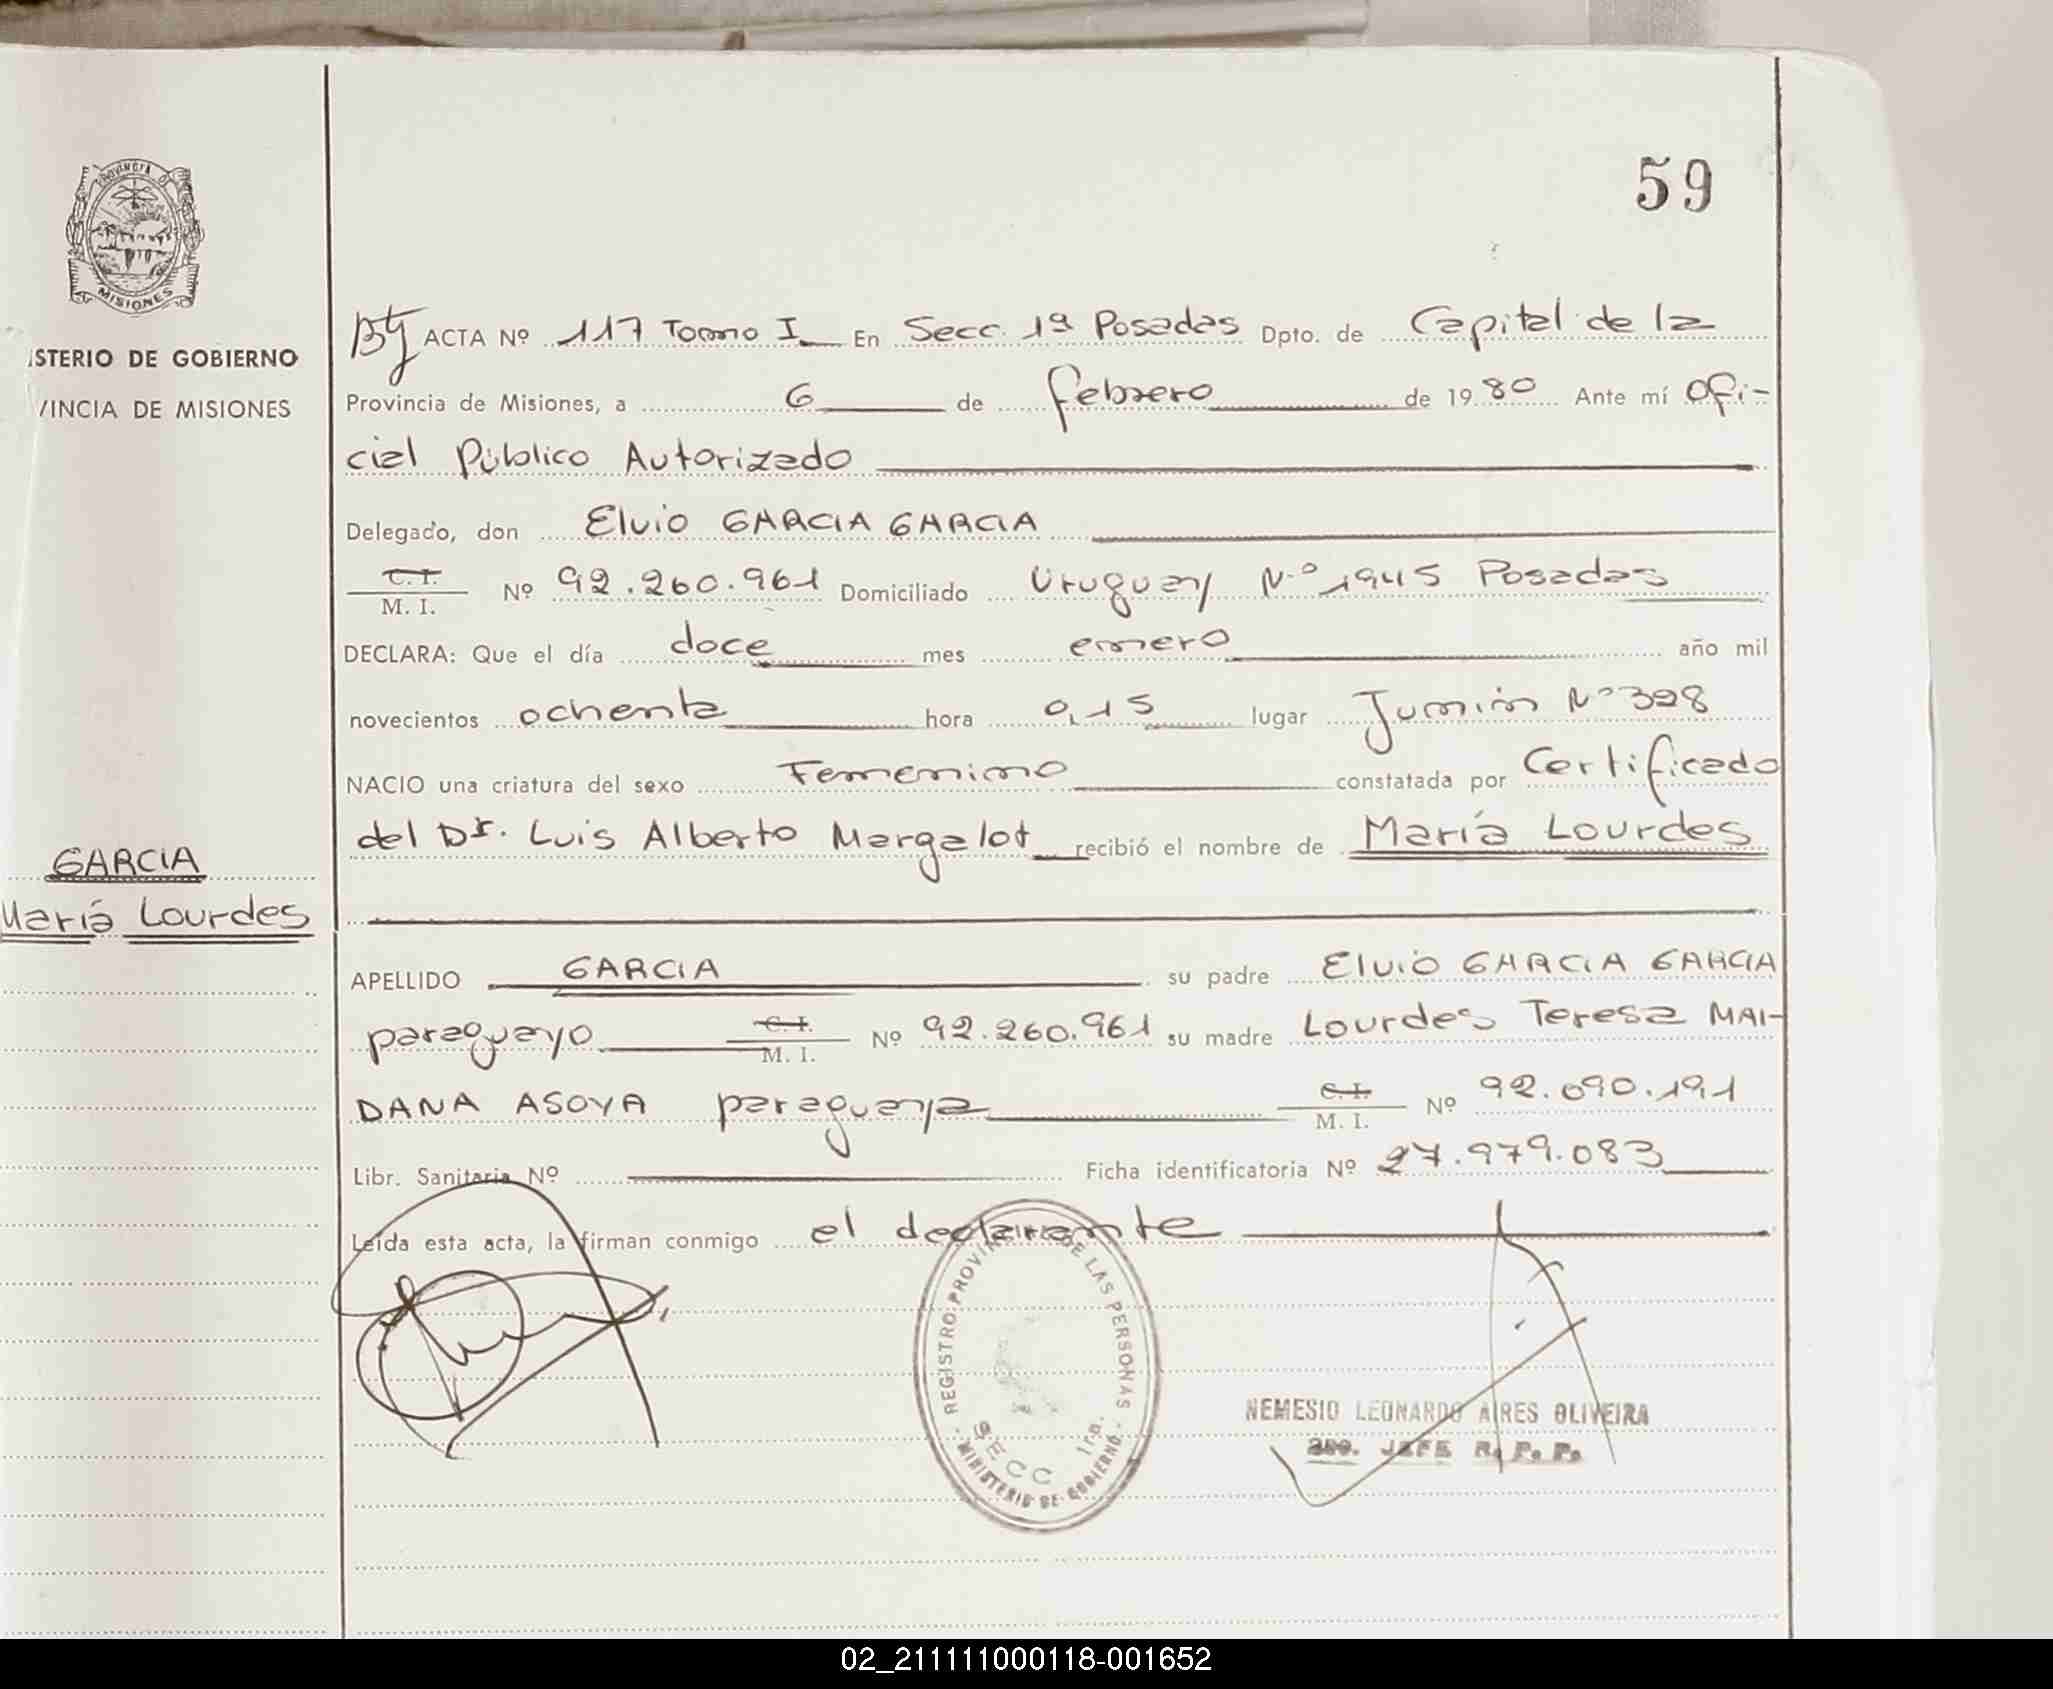 59
PROVINCIA D
MISIONES
ISTERIO DE GOBIERNO
VINCIA DE MISIONES
ACTA Nº 117 Tomo I En Secc. 1ª Posadas Dpto. de Capital de la
Provincia de Misiones, a 6 de febrero de 1980 Ante mí Ofi-
cial Público Autorizado
Delegado, don Elvio GARCIA GARCIA
C. I.
M. I. Nº 92.260.961 Domiciliado Uruguay Nº 1945 Posadas
DECLARA: Que el día doce mes enero año mil
novecientos ochenta hora 0,15 lugar Junin Nº 328
NACIO una criatura del sexo Femenino constatada por Certificado
del Dr. Luis Alberto Margalot recibió el nombre de María Lourdes
GARCIA
María Lourdes
APELLIDO GARCIA su padre Elvio GARCIA GARCIA
paraguayo C. I. M. I. Nº 92.260.961 su madre Lourdes Teresa MAI-
DANA ASOYA paraguaya C. I. M. I. Nº 92.090.191
Libr. Sanitaria Nº Ficha identificatoria Nº 27.979.083
Leída esta acta, la firman conmigo el declarante
REGISTRO PROVINCIAL DE LAS PERSONAS
SECC 1ra.
MINISTERIO DE GOBIERNO
NEMESIO LEONARDO AIRES OLIVEIRA
JEFE R. P. P.
02_211111000118-001652